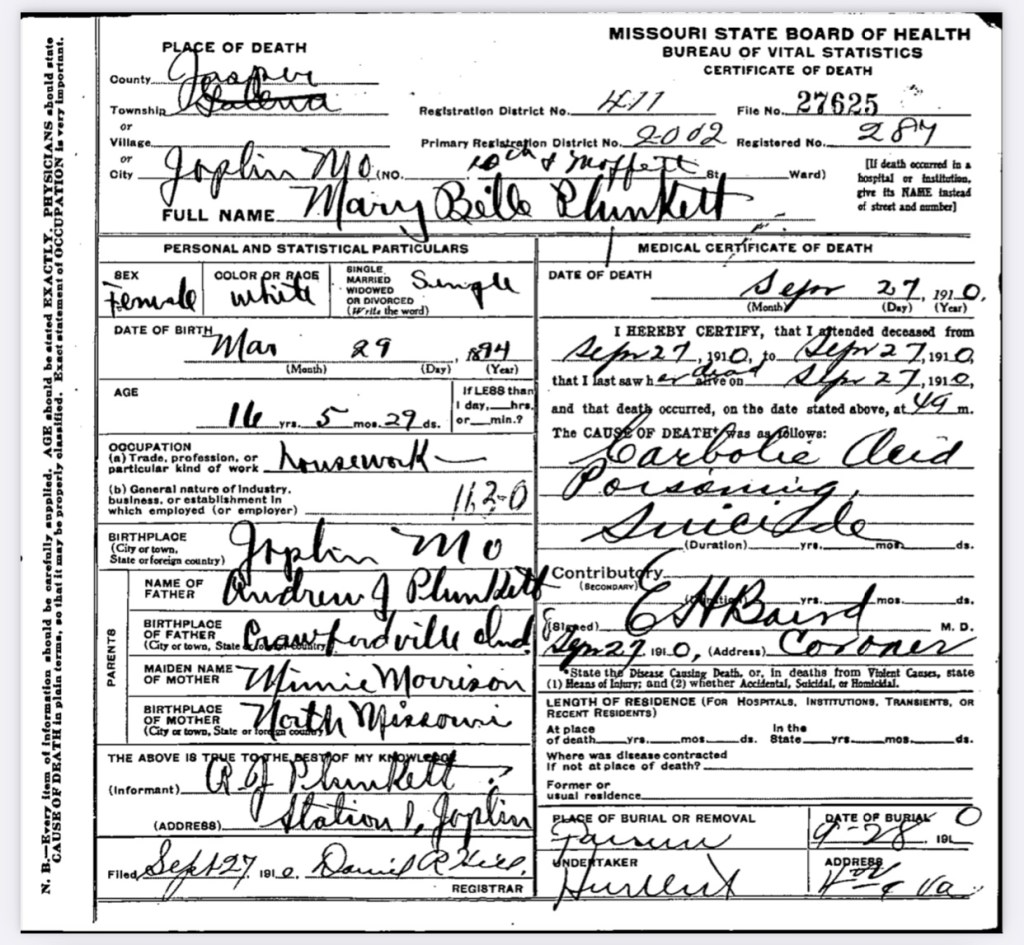 N. B.—Every item of information should be carefully supplied. AGE should be stated EXACTLY. PHYSICIANS should state
CAUSE OF DEATH in plain terms, so that it may be properly classified. Exact statement of OCCUPATION is very important.
MISSOURI STATE BOARD OF HEALTH
BUREAU OF VITAL STATISTICS
CERTIFICATE OF DEATH
PLACE OF DEATH
County Jasper
Township Galena
or
Village
or
City Joplin Mo (NO. 10th & Moffett St Ward)
Registration District No. 411 File No. 27625
Primary Registration District No. 2002 Registered No. 287
[If death occurred in a
hospital or institution,
give its NAME instead
of street and number]
FULL NAME Mary Belle Plunkett
PERSONAL AND STATISTICAL PARTICULARS
SEX Female
COLOR OR RACE White
SINGLE
MARRIED
WIDOWED
OR DIVORCED
(Write the word) Single
DATE OF BIRTH Mar 29, 1894
(Month) (Day) (Year)
AGE 16 yrs. 5 mos. 29 ds.
If LESS than
1 day, hrs.
or min.?
OCCUPATION
(a) Trade, profession, or
particular kind of work housework
(b) General nature of industry,
business, or establishment in
which employed (or employer) 113-0
BIRTHPLACE
(City or town,
State or foreign country) Joplin Mo
PARENTS
NAME OF
FATHER Andrew J Plunkett
BIRTHPLACE
OF FATHER
(City or town, State or foreign country) Crawfordville Ind
MAIDEN NAME
OF MOTHER Minnie Morrison
BIRTHPLACE
OF MOTHER
(City or town, State or foreign country) North Missouri
THE ABOVE IS TRUE TO THE BEST OF MY KNOWLEDGE
(Informant) A. J Plunkett
(ADDRESS) Station 1, Joplin
Filed Sept 27 1910. Daniel R Hill.
REGISTRAR
MEDICAL CERTIFICATE OF DEATH
DATE OF DEATH
Sepr 27, 1910.
(Month) (Day) (Year)
I HEREBY CERTIFY, that I attended deceased from
Sepr 27, 1910, to Sepr 27, 1910,
that I last saw her alive dead on Sepr 27, 1910,
and that death occurred, on the date stated above, at m.
The CAUSE OF DEATH* was as follows:
Carbolic Acid
Poisoning,
Suicide
(Duration) yrs. mos. ds.
Contributory
(SECONDARY)
(Duration) yrs. mos. ds.
(Signed) C H Baird M. D.
Sepr 27 1910, (Address) Coroner
*State the Disease Causing Death, or, in deaths from Violent Causes, state
(1) Means of Injury; and (2) whether Accidental, Suicidal, or Homicidal.
LENGTH OF RESIDENCE (FOR HOSPITALS, INSTITUTIONS, TRANSIENTS, OR
RECENT RESIDENTS)
At place In the
of death yrs. mos. ds. State yrs. mos. ds.
Where was disease contracted
if not at place of death?
Former or
usual residence
PLACE OF BURIAL OR REMOVAL
DATE OF BURIAL
9-28 1910
UNDERTAKER
Hurlbut
ADDRESS
4th & Va